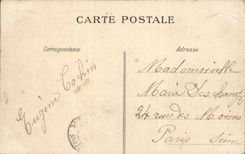 CARTE POSTALE
Correspondance
Adresse
Eugène
Mademoiselle
Marie Des
24 rue des
Paris
Seine